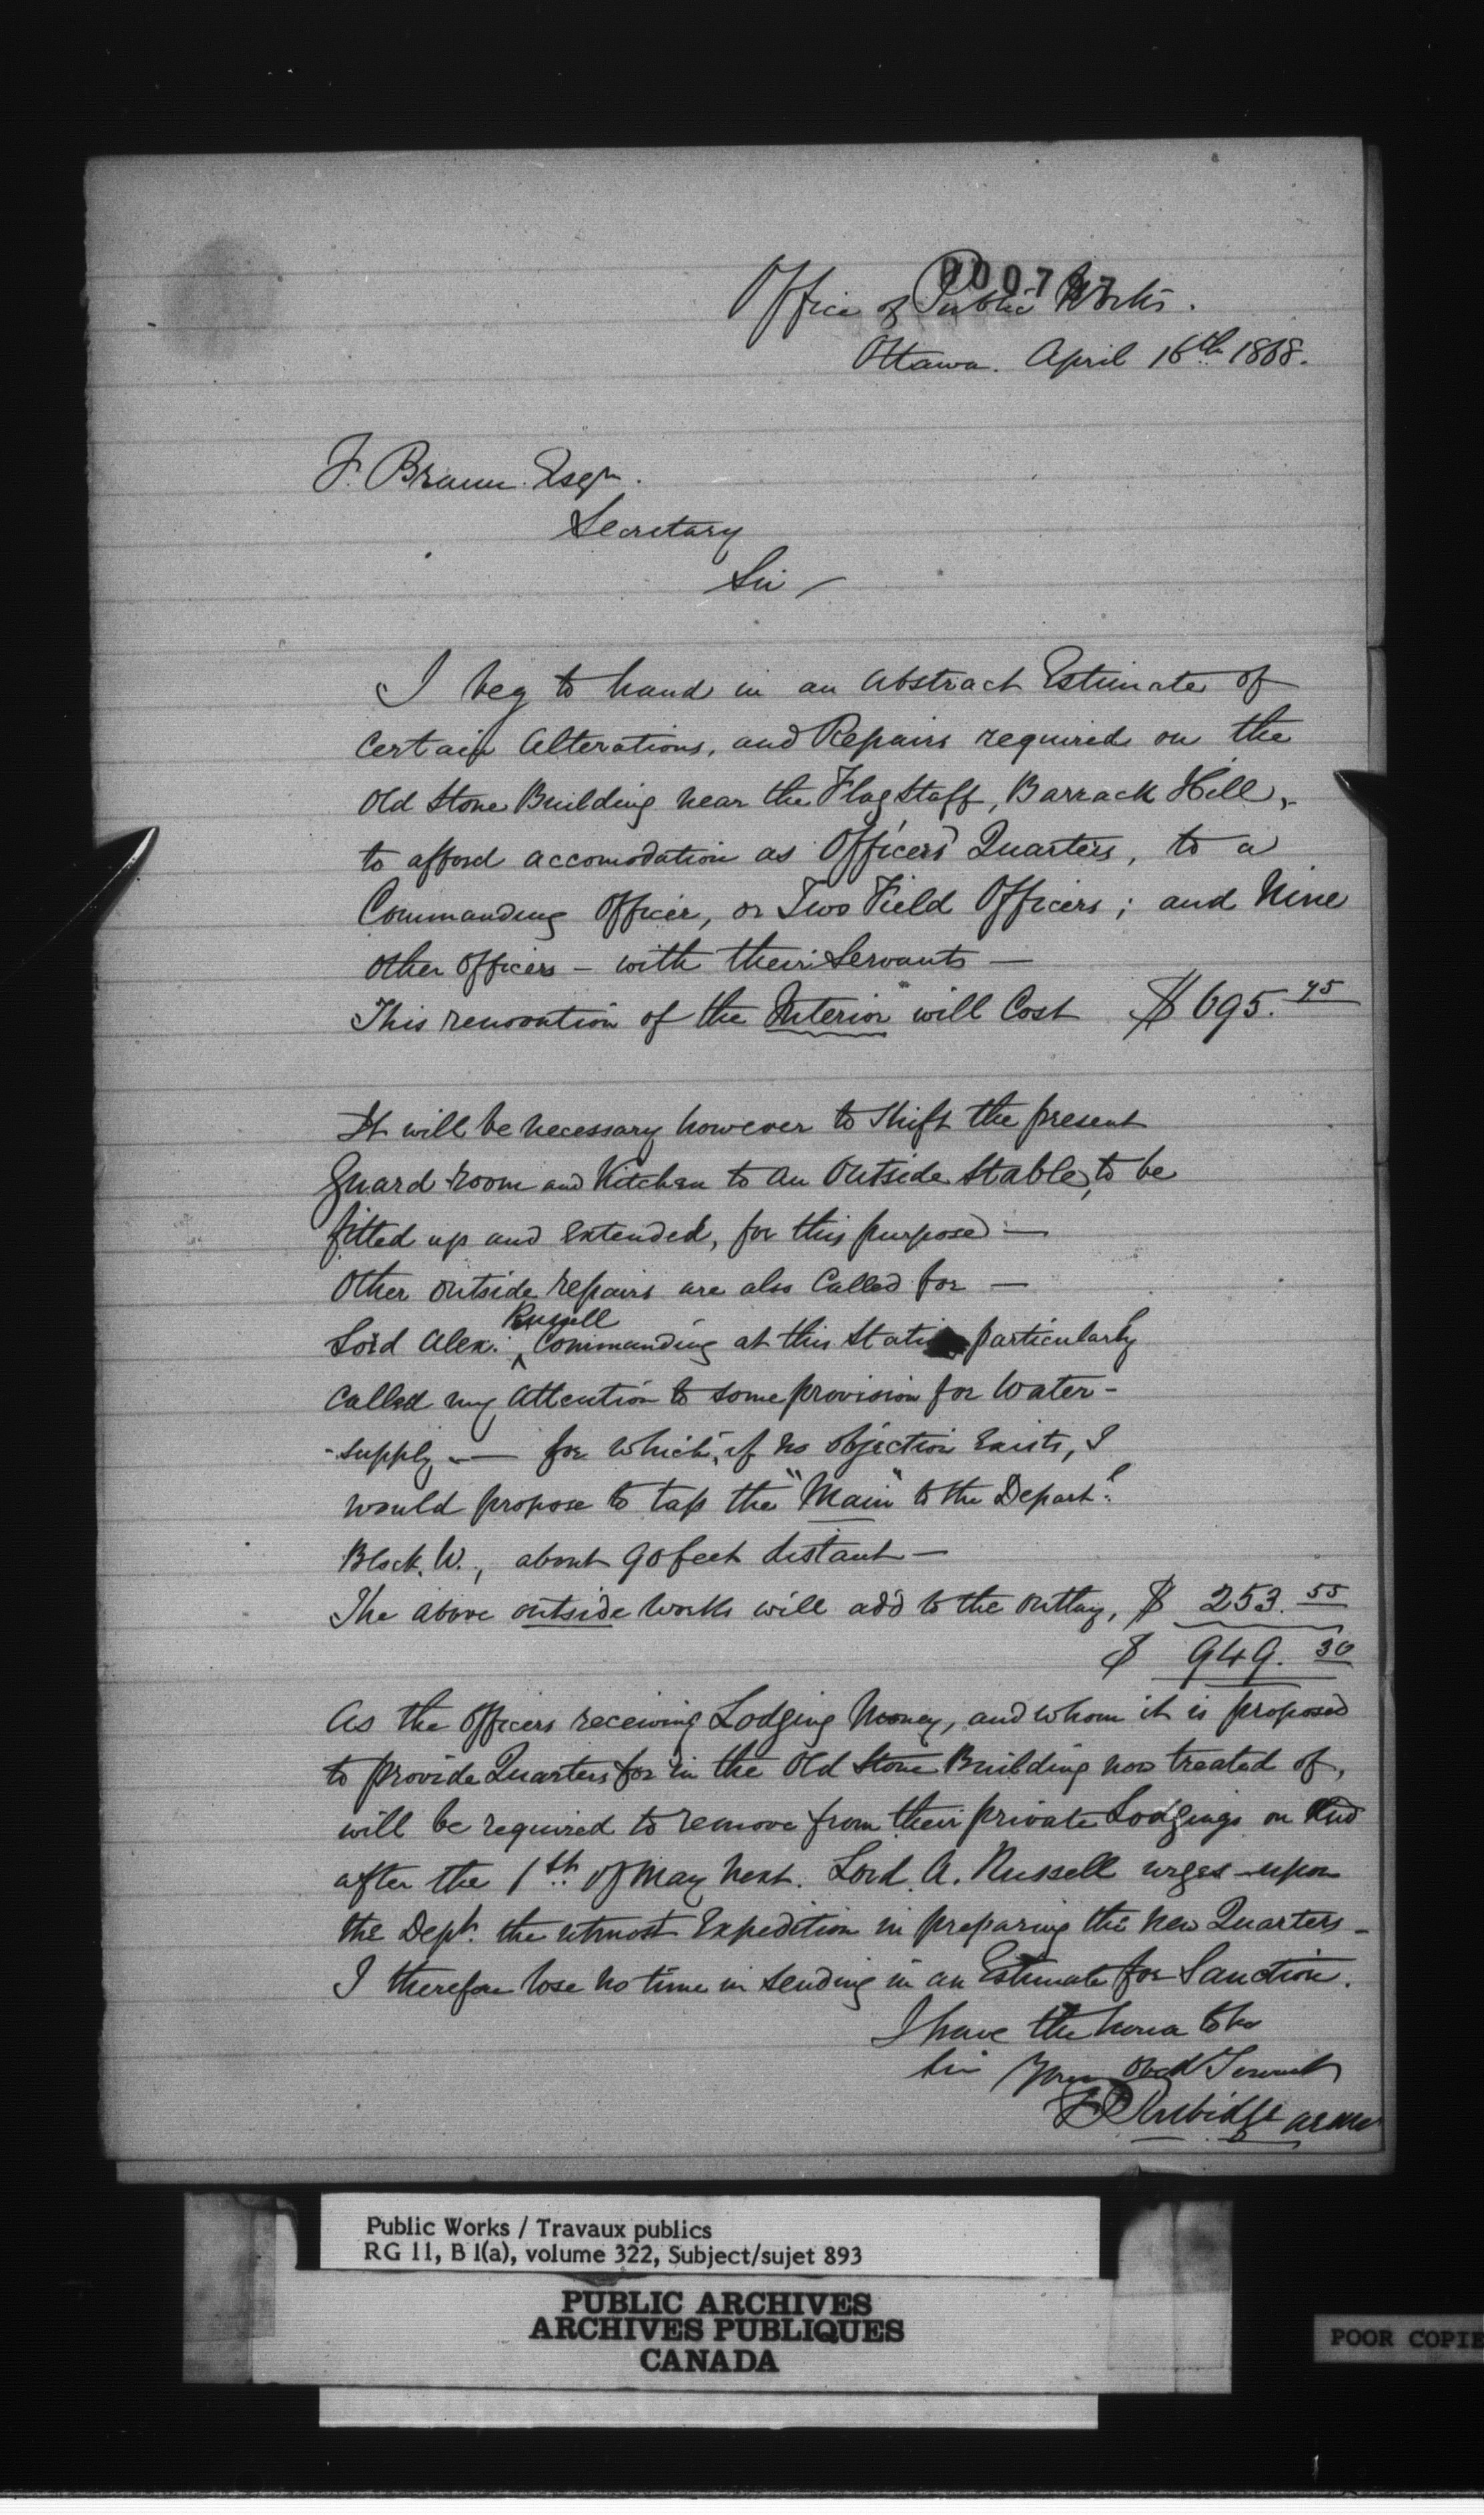 Office of Public Works.
Ottawa. April 16th 1868.
F. Braun. Esqr.
Secretary
Sir /
I beg to hand in an Abstract Estimate of
certain Alterations, and Repairs required on the
Old Stone Building near the Flag Staff, Barrack Hill,
to afford accomodation as Officers' Quarters, to a
Commanding Officer, or Two Field Officers; and Nine
other Officers – with their Servants —
This renovation of the "Interior" will Cost $ 695. 75
It will be necessary however to Shift the present
Guard room and Kitchen to an Outside Stable, to be
fitted up and extended, for this purpose —
Other outside repairs are also Called for —
Russell
Lord Alex: ^ Commanding at this particularly
called my Attention to some provision for Water-
-supply — for which, if no objection Exists, I
would propose to tap the "Main" to the Depart.l
Block. W., about 90 feet distant —
The above outside works will add to the outlay, $ 253. 55
$ 949. 30
As the Officers receiving Lodging Money, and whom it is proposed
to provide Quarters for in the Old Stone Building now treated of,
will be required to remove from their private Lodgings on And
after the 1st. of May next. Lord A. Russell urges upon
the Dept. the utmost Expedition in preparing the New Quarters –
I therefore lose no time in sending in an Estimate for Sanction.
I have the honor to be
Sir Your Obed Servant
Public Works / Travaux publics
RG 11, B 1(a), volume 322, Subject/sujet 893
PUBLIC ARCHIVES
ARCHIVES PUBLIQUES
CANADA
POOR COPIE